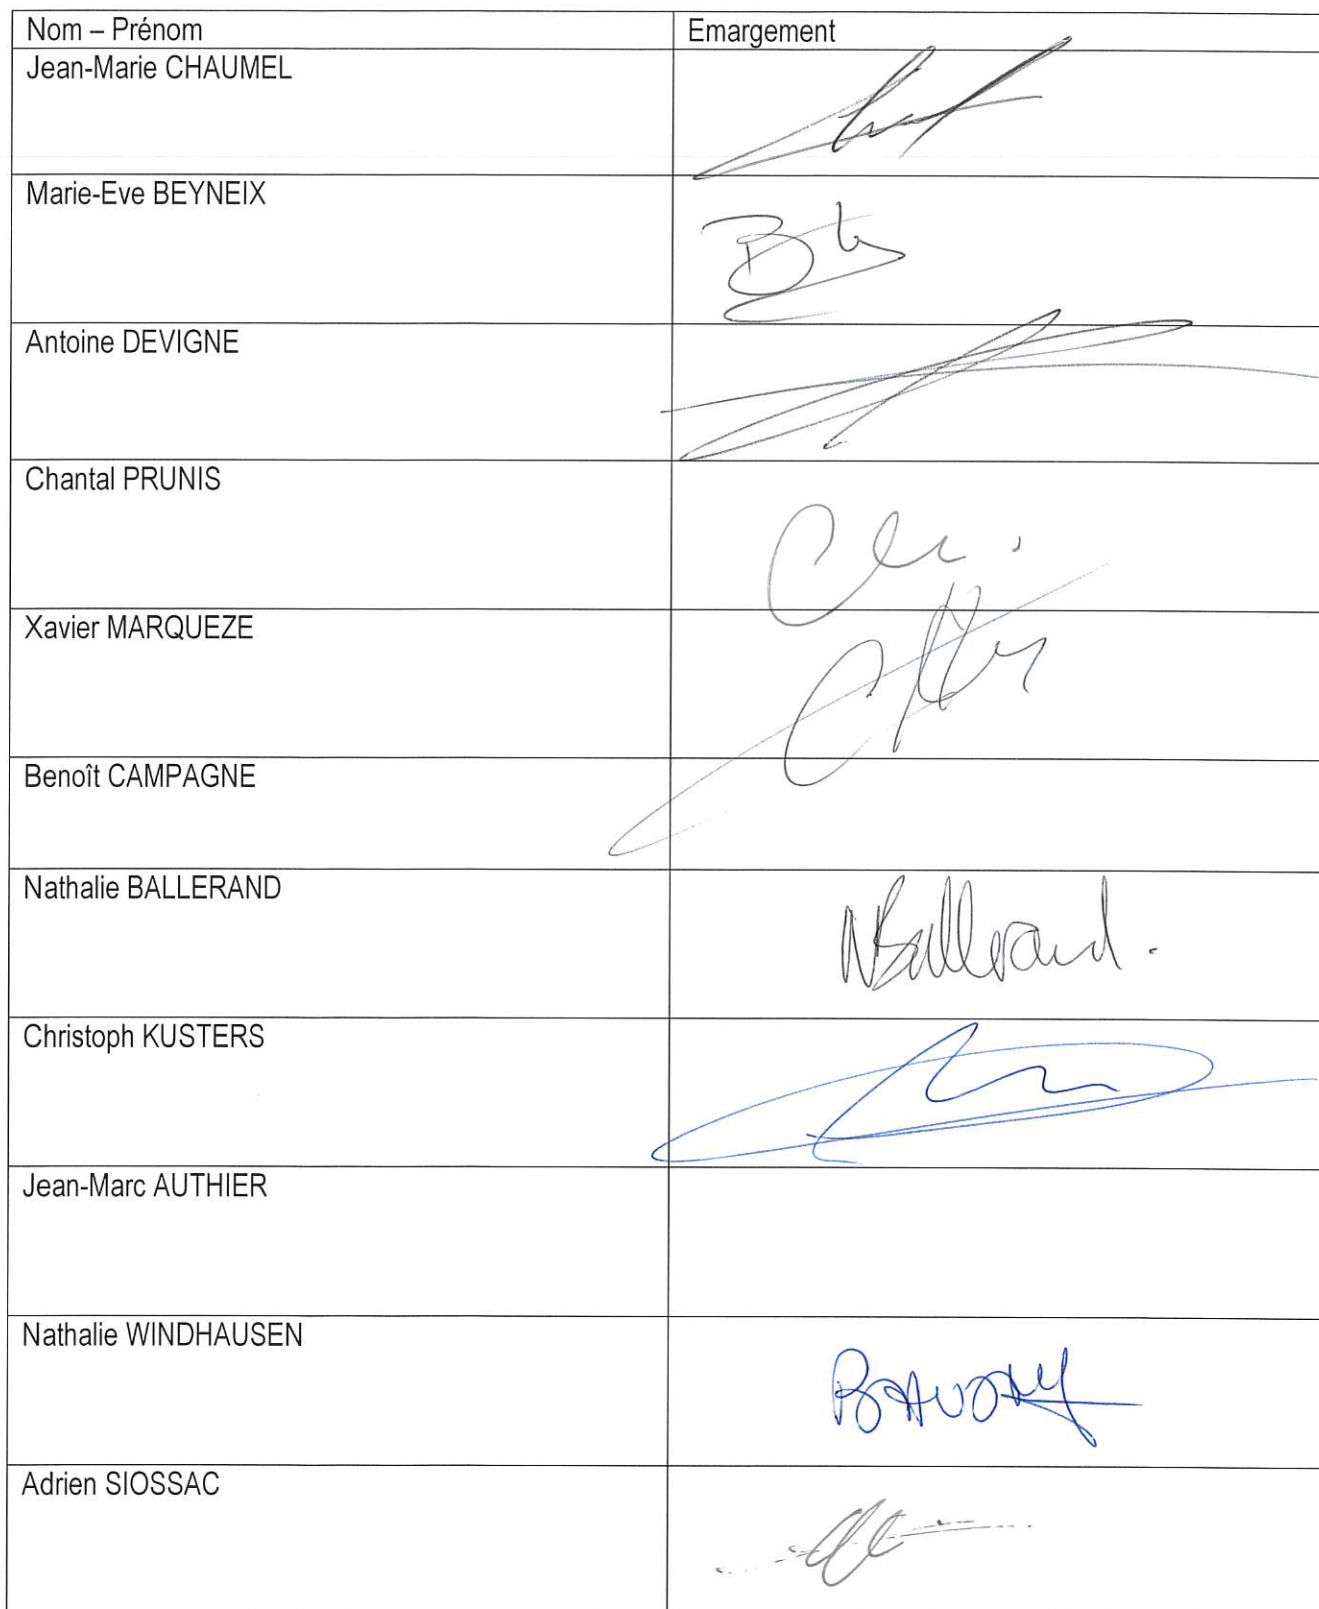 Nom – Prénom
Emargement
Jean-Marie CHAUMEL
Marie-Eve BEYNEIX
Antoine DEVIGNE
Chantal PRUNIS
Xavier MARQUEZE
Benoît CAMPAGNE
Nathalie BALLERAND
NBallerand.
Christoph KUSTERS
Jean-Marc AUTHIER
Nathalie WINDHAUSEN
Adrien SIOSSAC